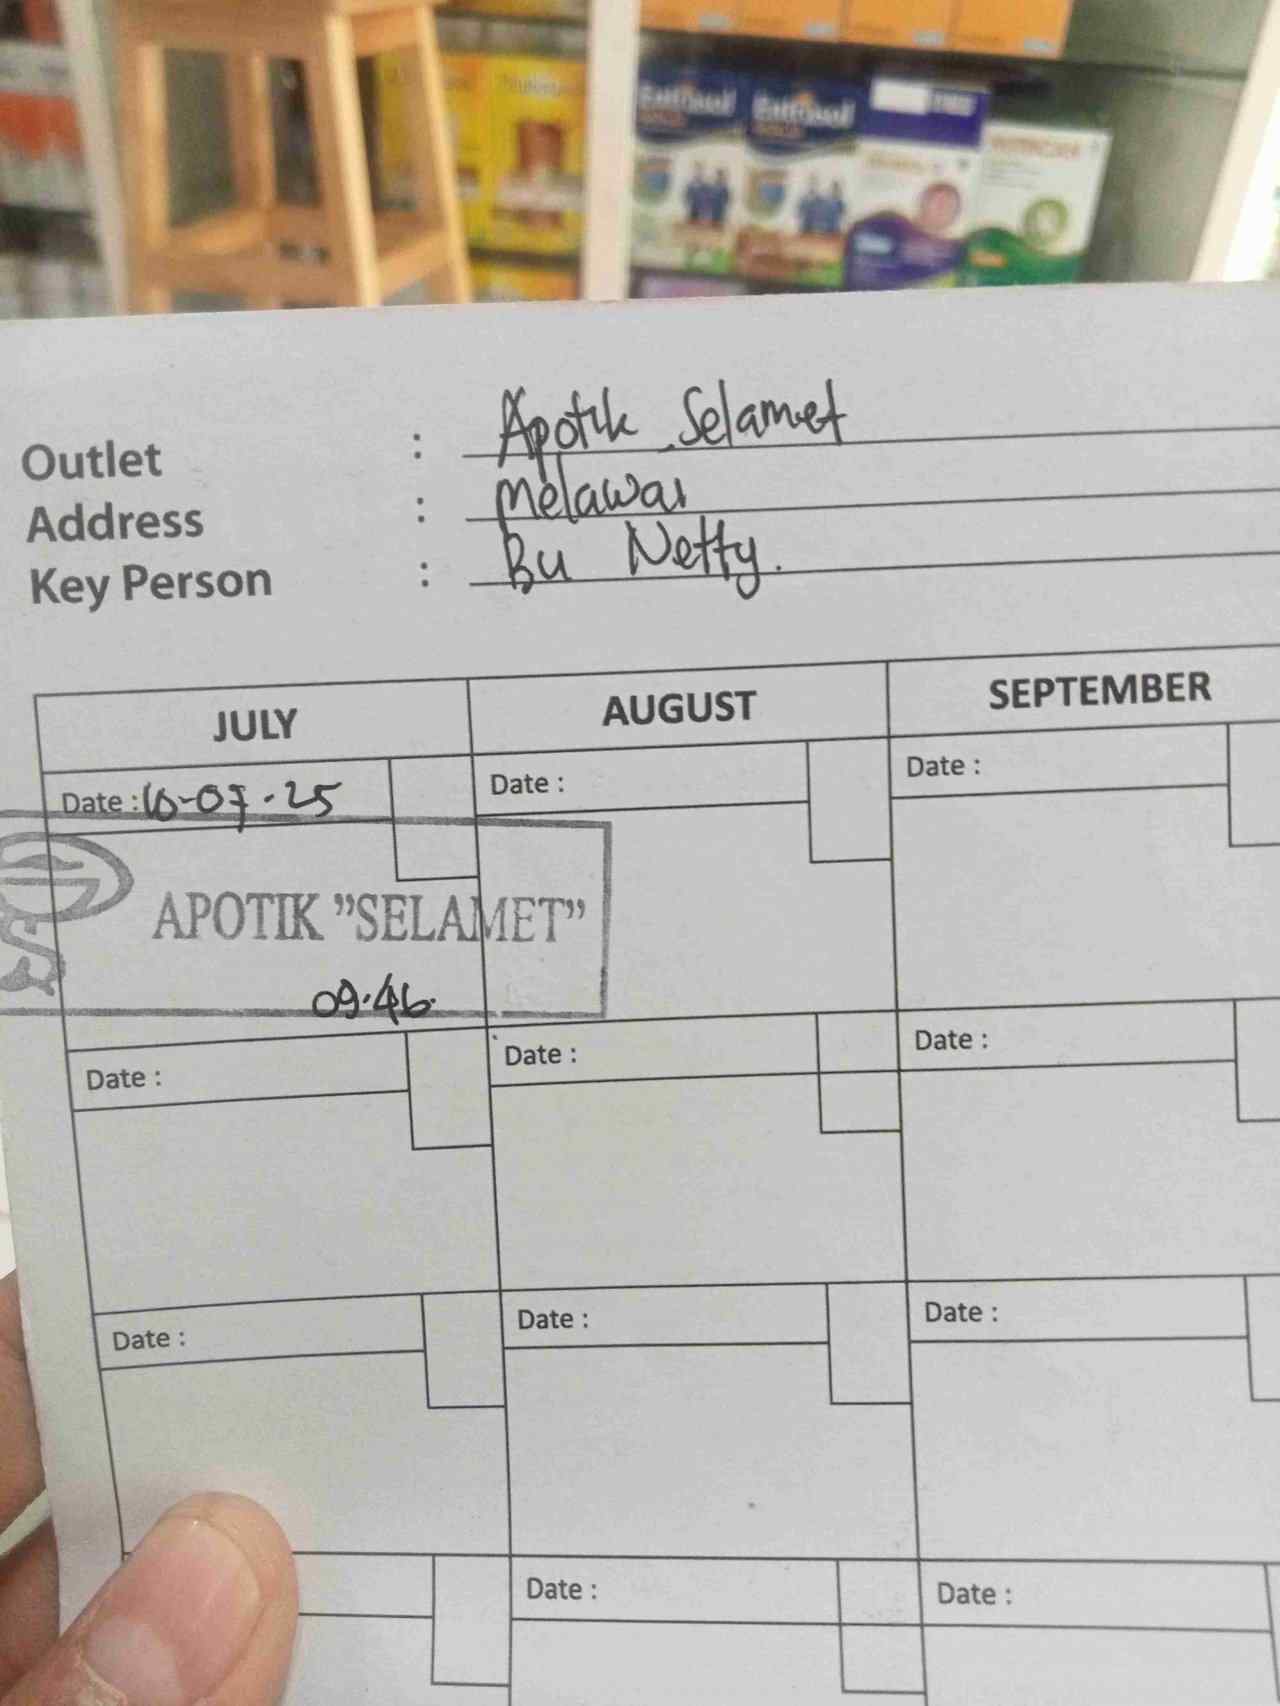 Outlet : Apotik Selamet
Address : Melawai
Key Person : Bu Netty.
JULY AUGUST SEPTEMBER
Date : 10-07-25 Date : Date :
APOTIK "SELAMET"
09.46.
Date : Date : Date :
Date : Date : Date :
Date : Date :